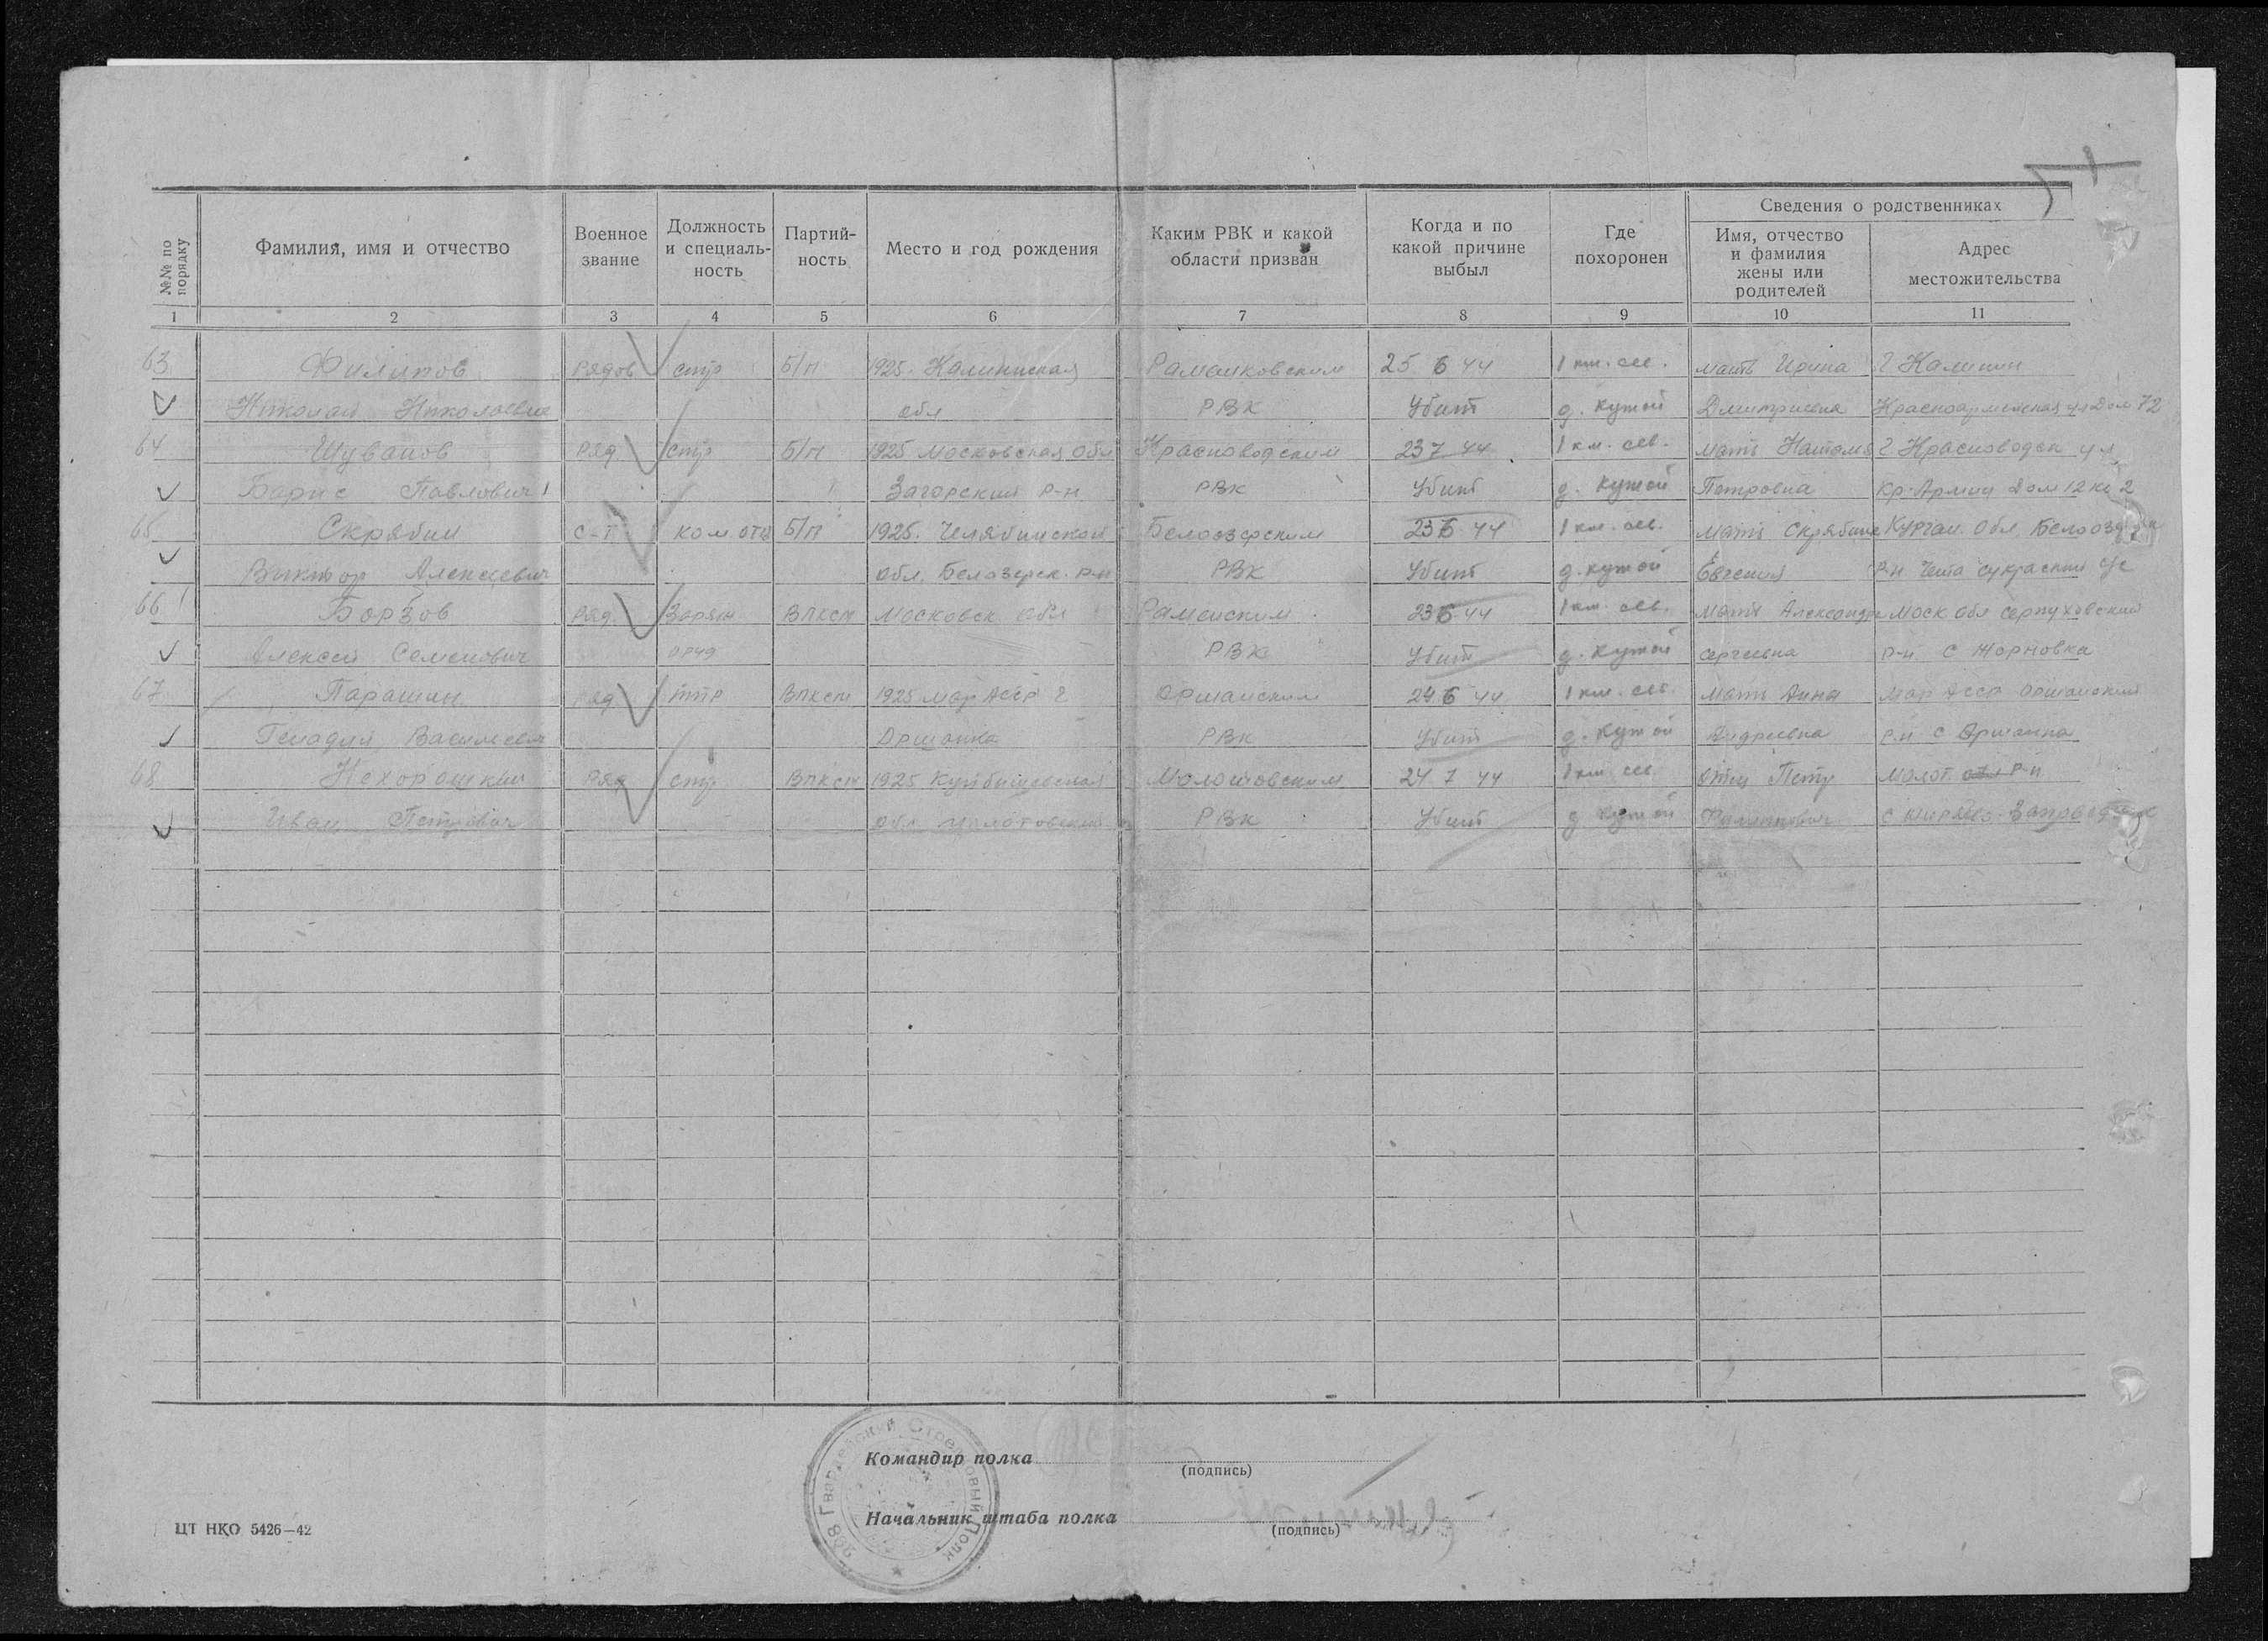 №№ по порядку
Фамилия, имя и отчество
Военное звание
Должность и специаль-ность
Партий-ность
Место и год рождения
Каким РВК и какой области призван
Когда и по какой причине выбыл
Где похоронен
Сведения о родственниках
Имя, отчество и фамилия жены или родителей
Адрес местожительства
1 2 3 4 5 6 7 8 9 10 11
63 Филипов рядов стр Б/п 1925. Калининская 25 6 44 1 км. сев. мать Ирина г Калинин
Николай Николаевич обл РВК Убит д. Дмитриевна Красноармейская ул Дом 72
64 Шуванов ряд стр Б/п 1925 Московская обл Красноводским 23 7 44 1 км. сев. мать г Красноводск ул
Борис Павлович Загорский р-н РВК Убит д. Петровна Кр. Армии Дом 12 кв 2
65 Скрябин с-т ком отд Б/п 1925. Челябинской Белозерским 23 6 44 1 км. сев. мать Скрябина Курган. Обл.
Виктор Алексеевич обл. Белозерск. р-н РВК Убит д. Евгения р-н
66 Борзов ряд. Заряж ВЛКСМ Московск обл Раменским 23 6 44 1 км. сев. мать Александра Моск обл Серпуховский
Алексей Семенович РВК Убит д. Сергеевна р-н с
67 Парашин ряд ВЛКСМ 1925 Мар АССР г Оршанским 24 6 44 1 км. сев. мать Анна Мар АССР Оршанский
Генадий Васильевич Оршанка РВК Убит д. Андреевна р-н с Оршанка
68 Нехорошкин ряд стр ВЛКСМ 1925 Куйбышевская Молотовским 24 7 44 1 км сев отец Петр Молот р-н
Иван Петрович обл. Молотовский РВК Убит д с
Командир полка
(подпись)
Начальник штаба полка
(подпись)
Гвардейский Стрелковый Полк
ЦТ НКО 5426—42